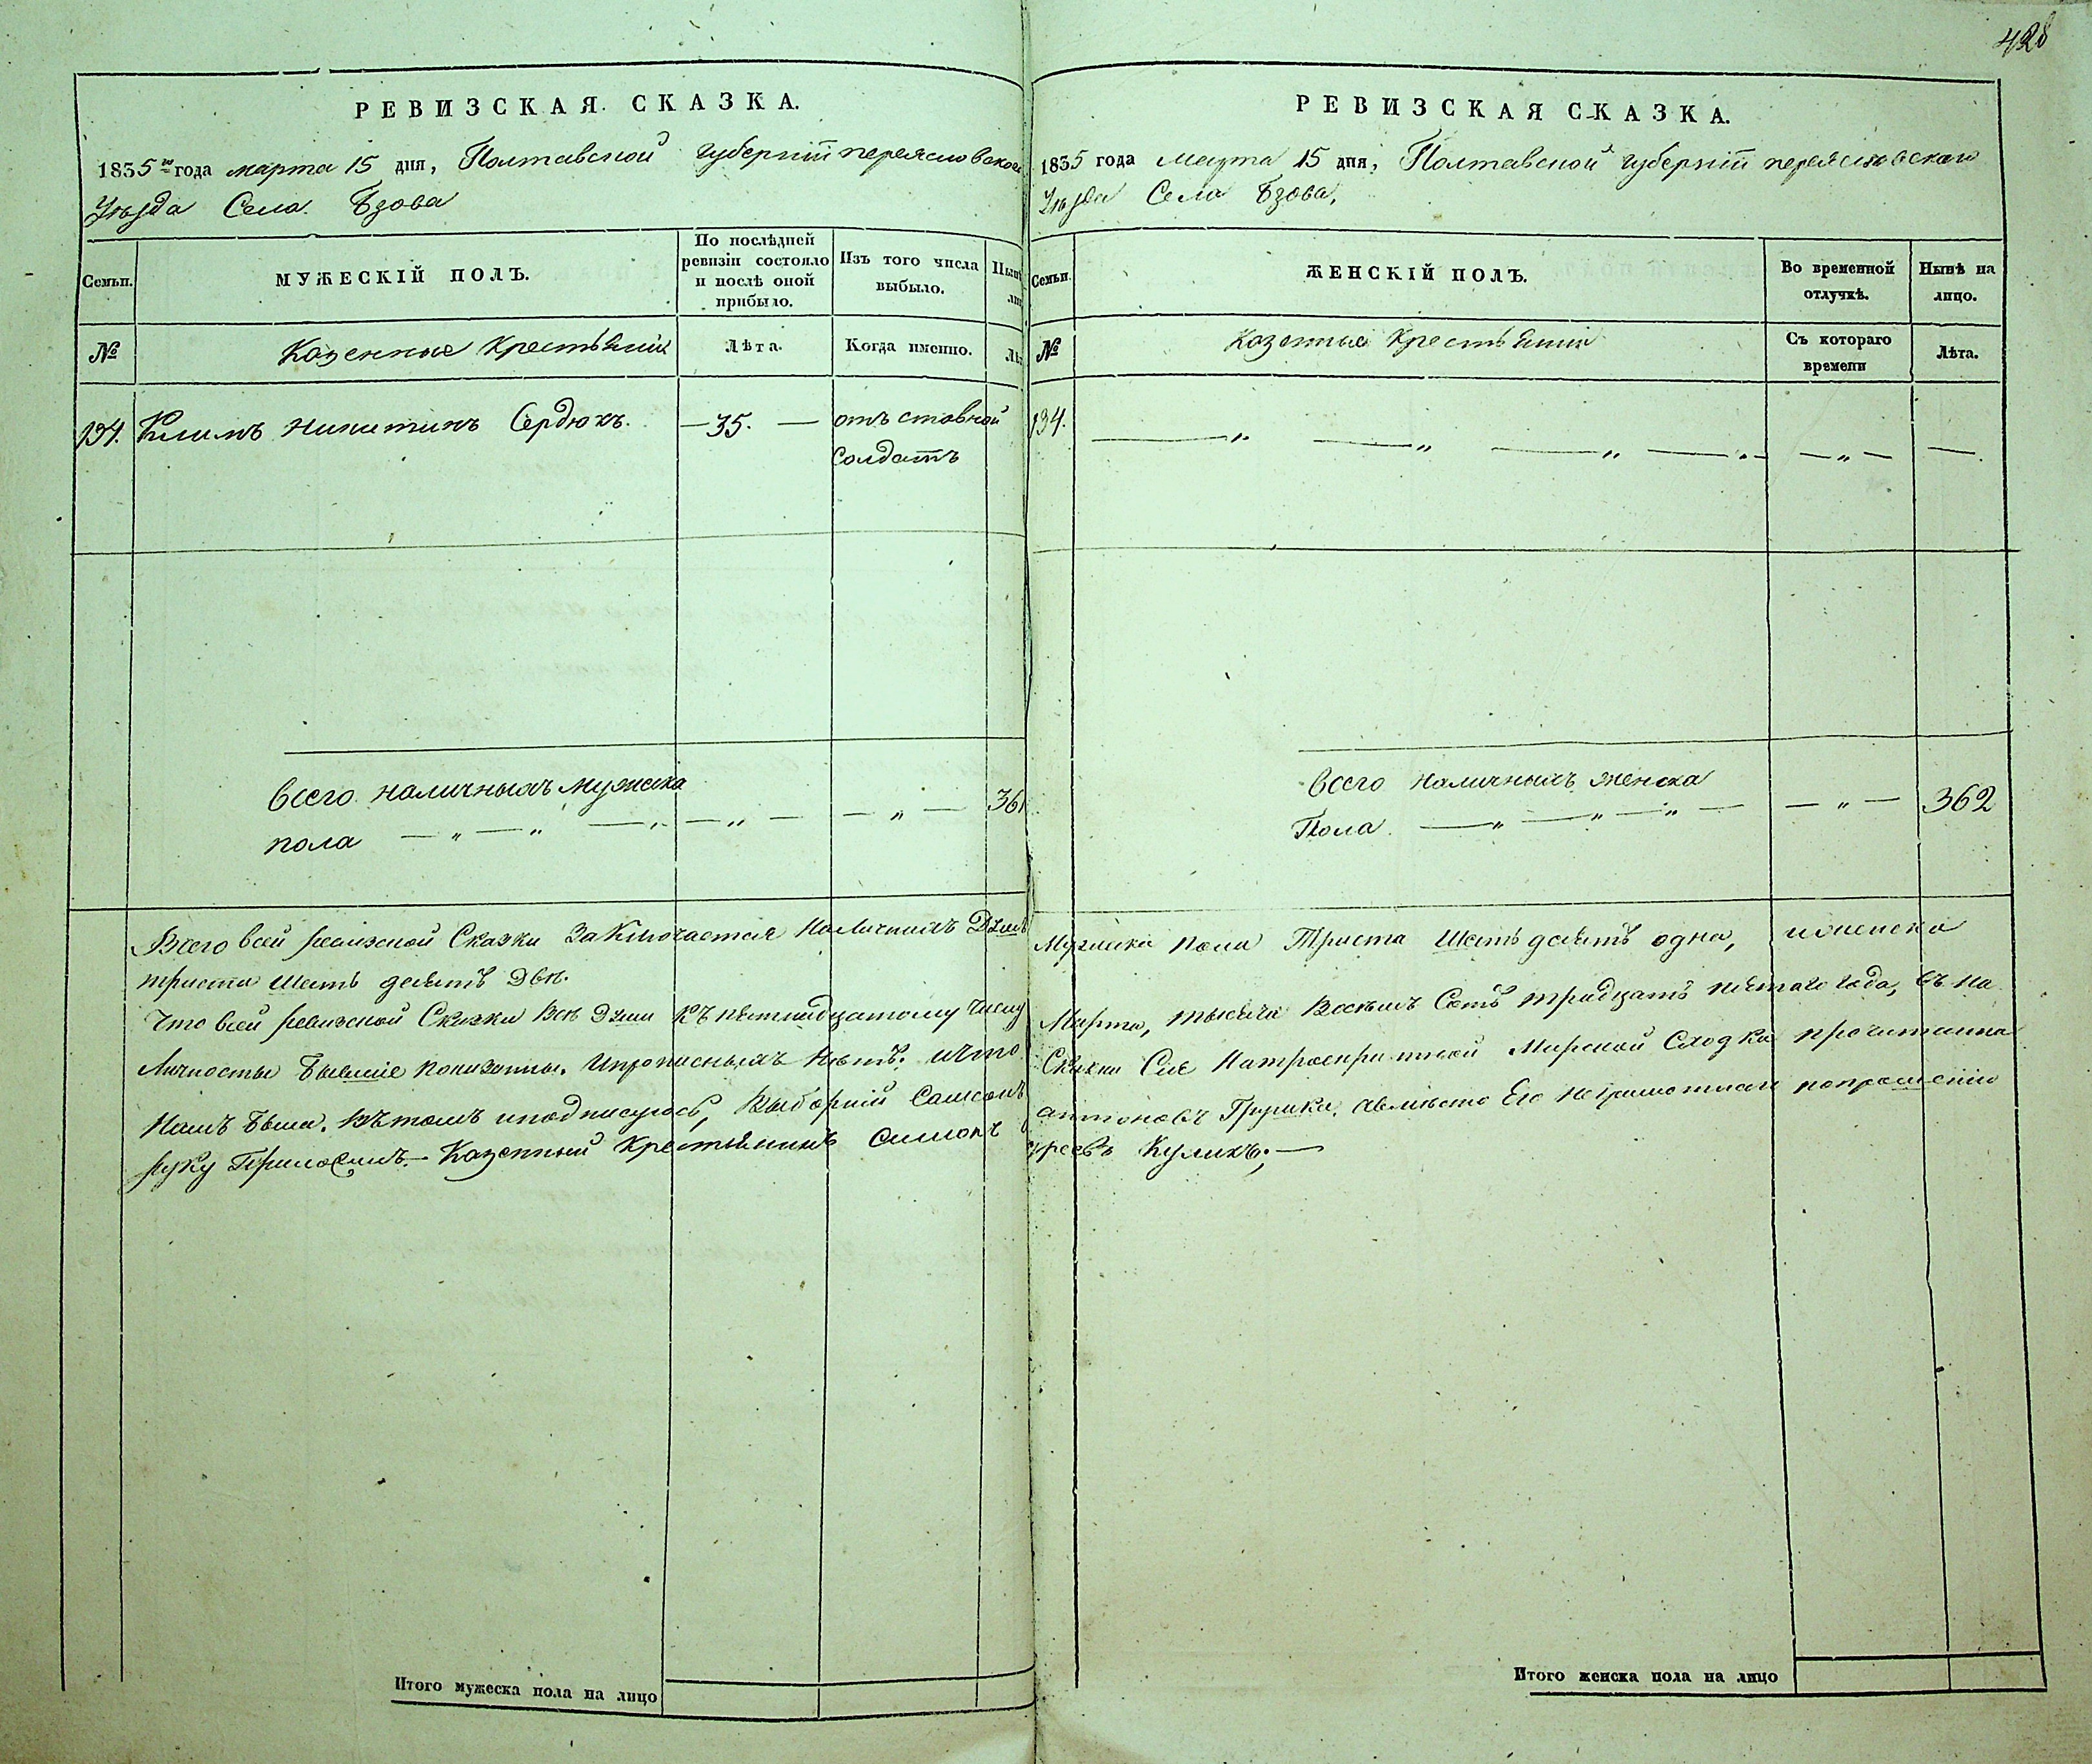 428
РЕВИЗСКАЯ СКАЗКА.
1835 го года марта 15 дня, Полтавской губерніи переясловского
Уѣзда Села Бзова
Семьи.
МУЖЕСКІЙ ПОЛЪ.
По послѣдней
ревизіи состояло
и послѣ оной
прибыло.
Изъ того числа
выбыло.
Нынѣ
ли
№
Казенные Крестьяни
Лѣта.
Когда именно.
Лѣ
134. Климъ Никитинъ Сердюкъ. — 35. — отъ ставной
Солдатъ
Всего наличныхъ мужска
пола — „ — „ — „ — „ — — „ — 361
РЕВИЗСКАЯ СКАЗКА.
1835 года Марта 15 дня, Полтавской губерніи переясловскаго
Уѣзда Села Бзова,
Семьи.
ЖЕНСКІЙ ПОЛЪ.
Во временной
отлучкѣ.
Нынѣ на
лицо.
№
Казенные Крестьянии
Съ котораго
времени
Лѣта.
134. — „ — „ — „ — „ — — „ — —.
Всего наличныхъ женска
Пола. — „ — „ — „ — — „ — 362
Всего всей ревизской Сказки Заключается Наличныхъ Душъ Мужска пола Триста Шесть десятъ одна, иженска
триста Шесть десятъ Двѣ.
Что всей ревизской Сказки Всѣ Души Къ пятнадцатому числу Марта, тысяча Восемъ Сотъ тридцатъ пятаго года, въ на
личносты бывшіе показанны. Ипрописныхъ Нѣтъ; ичто Сказки Сіе Мирской Сходки прочитанна
Намъ была. Вътомъ иподписуюсь, Выборній Самсонъ антоновъ Грушка, авмѣсто Его Неграмотнаго попрошенію
руку Приложилъ. — Казенный Крестьянинъ Симонъ Куликъ; —
Итого мужеска пола на лицо
Итого женска пола на лицо